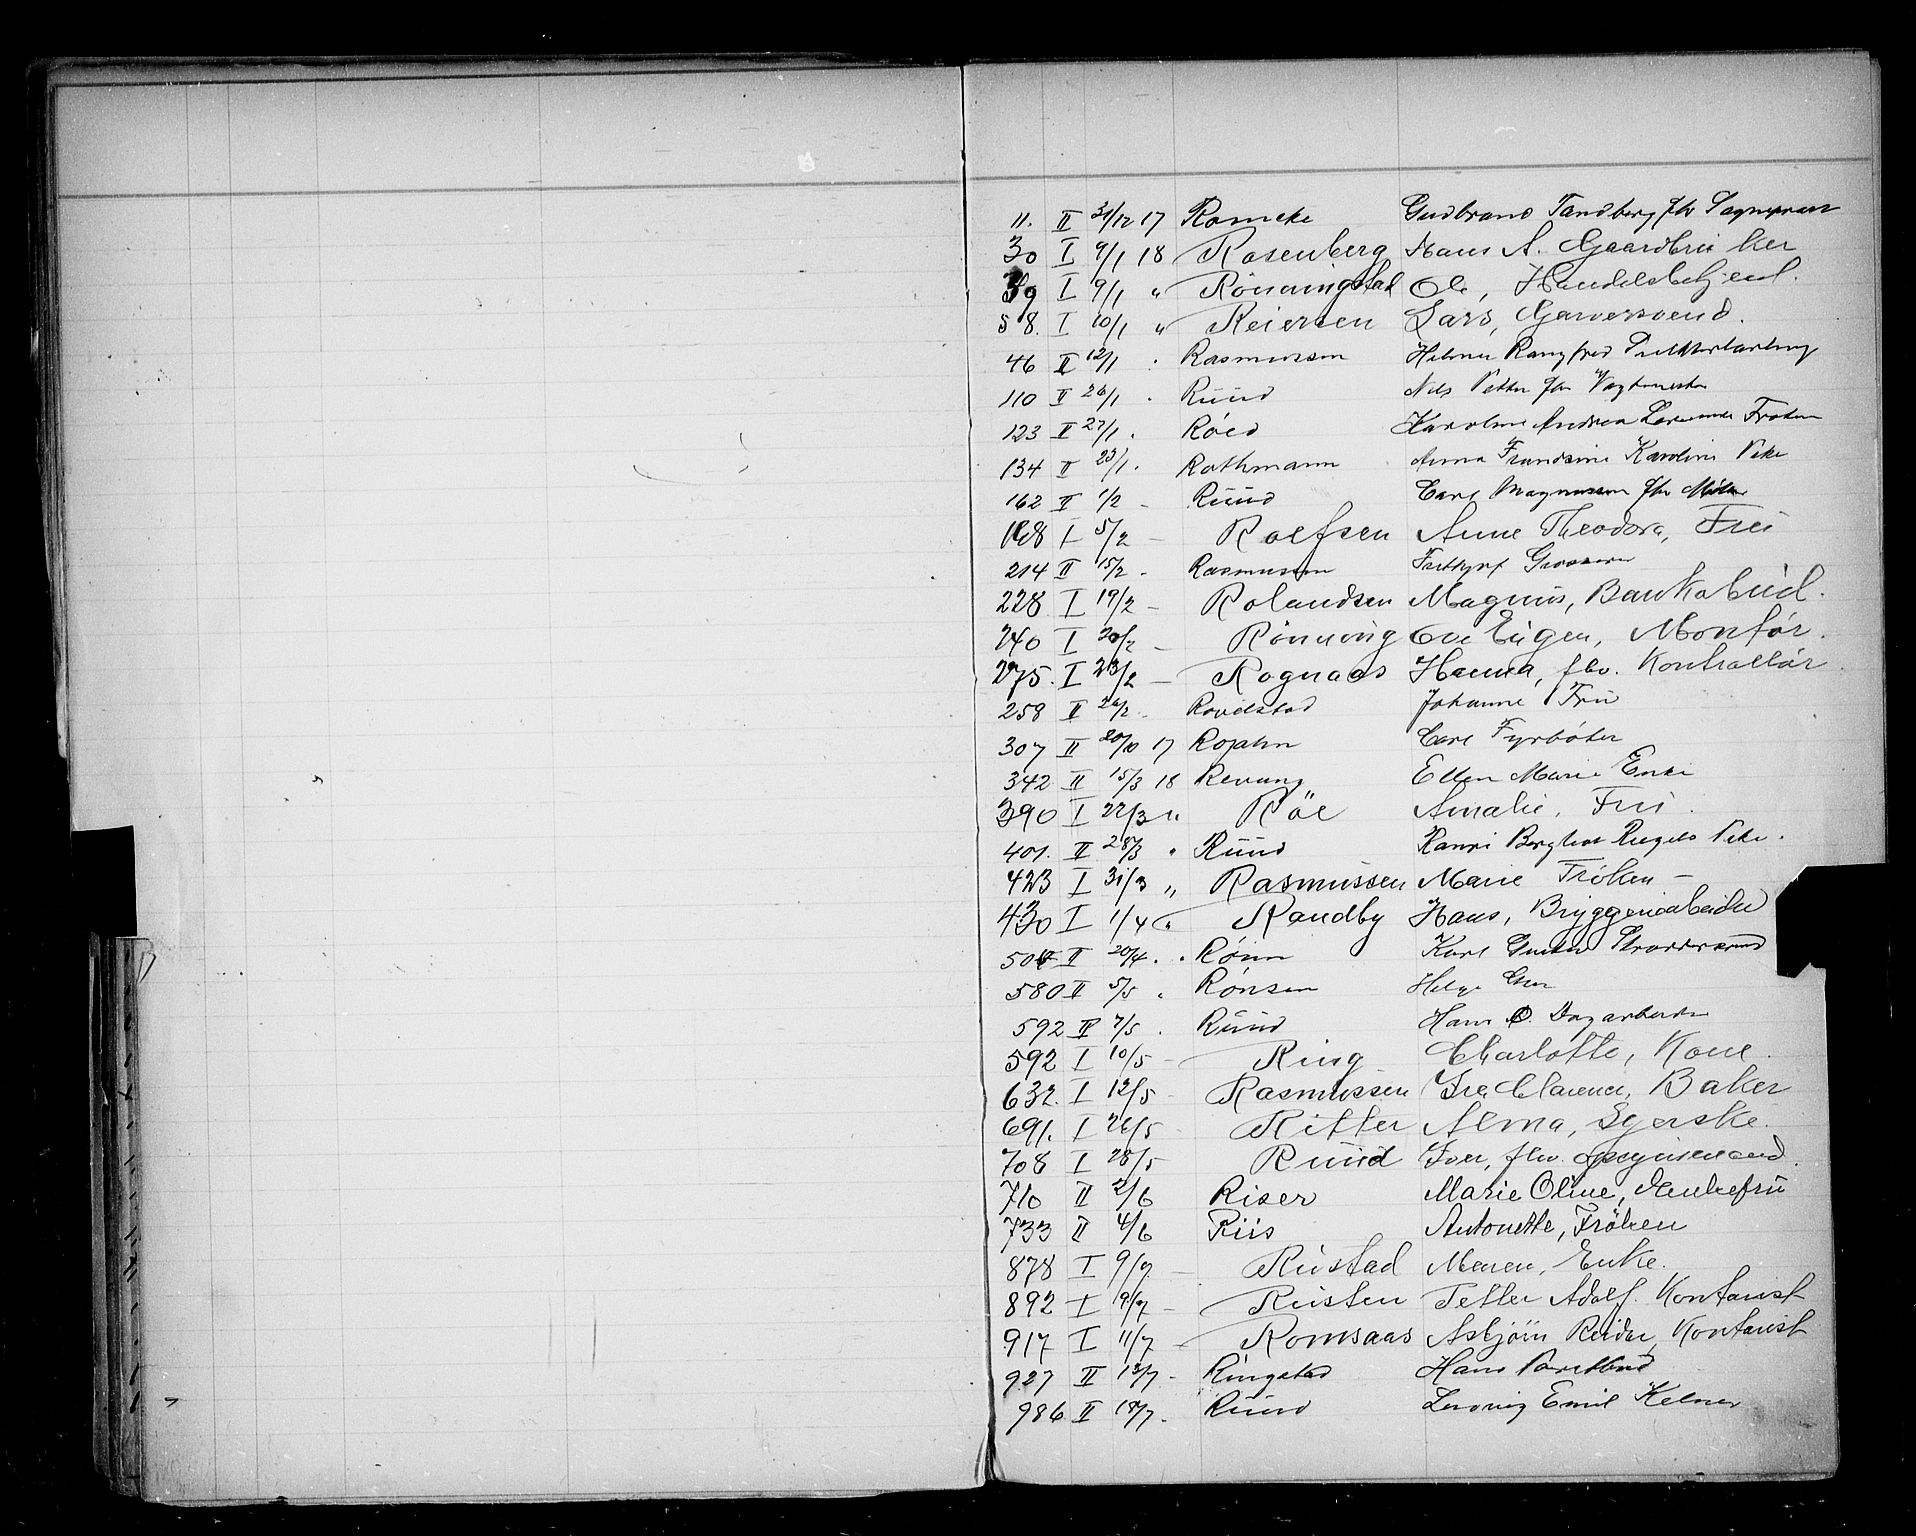 11. II 31/12 17 Romcke Gudbrand Tandberg fhv Sogneprest
30 I 9/1 18 Rosenberg Hans A. Gaardbruker
39 I 9/1 " Rönningstad Ole, Handelsbetjent.
58. I 10/1 " Reiersen Lars, Garversvend.
46 II 12/1 . Rasmussen Helmer Rangfred
110 II 26/1 . Ruud Nils Petter fhv Vagtmester
123 II 27/1 . Röed Karoline Andrea Frøken
134 II 23/1 . Rothmann Anna Frandsine Karoline Pike
162 II 1/2 - Ruud Carl Magnussen fhv
168 I 5/2 - Roefsen Anne Theodora, Fru
214 II 15/2 - Rasmussen Grosserer
228 I 19/2 - Rolandsen Magnus, Bankobud.
240 I 20/2 - Rönning Ove Eugen, Montör.
275. I 23/2 - Rognaas Hanna, fhv. Kontrollör.
258 II 26/2 - Rovelstad Johanne Fru
307 II 20/10 17 Rojahn Carl Fyrböter
342 II 15/3 18 Revang Ellen Marie Enke
390 I 22/3 " Röe Amalie, Fru.
401. II 28/3 " Ruud Ranri Borghat Pike.
423 I 31/3 " Rasmussen Marie Fröken -
430 I 1/4 " Randby Hans, Bryggeriarbeider
504 II 20/4 . Rönn Karl Gustav Skræddersvend
580 II 5/5 . Rönsen Helge
592 II 7/5 . Ruud Hans O. Dagarbeider
592 I 10/5 - Ring Charlotte, Kone.
632. I 12/5 - Rasmussen Ire Clarence, Baker
691. I 26/5 - Ritter Alma, Syerske.
708 I 28/5 - Ruud Iver, fhv.
710 II 2/6 Riser Marie Oline, Enkefru
733 II 4/6 Riis Antonette, Fröken
878 I 9/7 - Rustad Maren, Enke.
892 I 9/7 - Rusten Petter Adolf. Kontorist
917 I 11/7 - Romsaas Asbjörn Reidar, Kontorist
927 II 13/7 - Ringstad Hans Postbud
986 II 18/7. Ruud Ludvig Emil Kelner